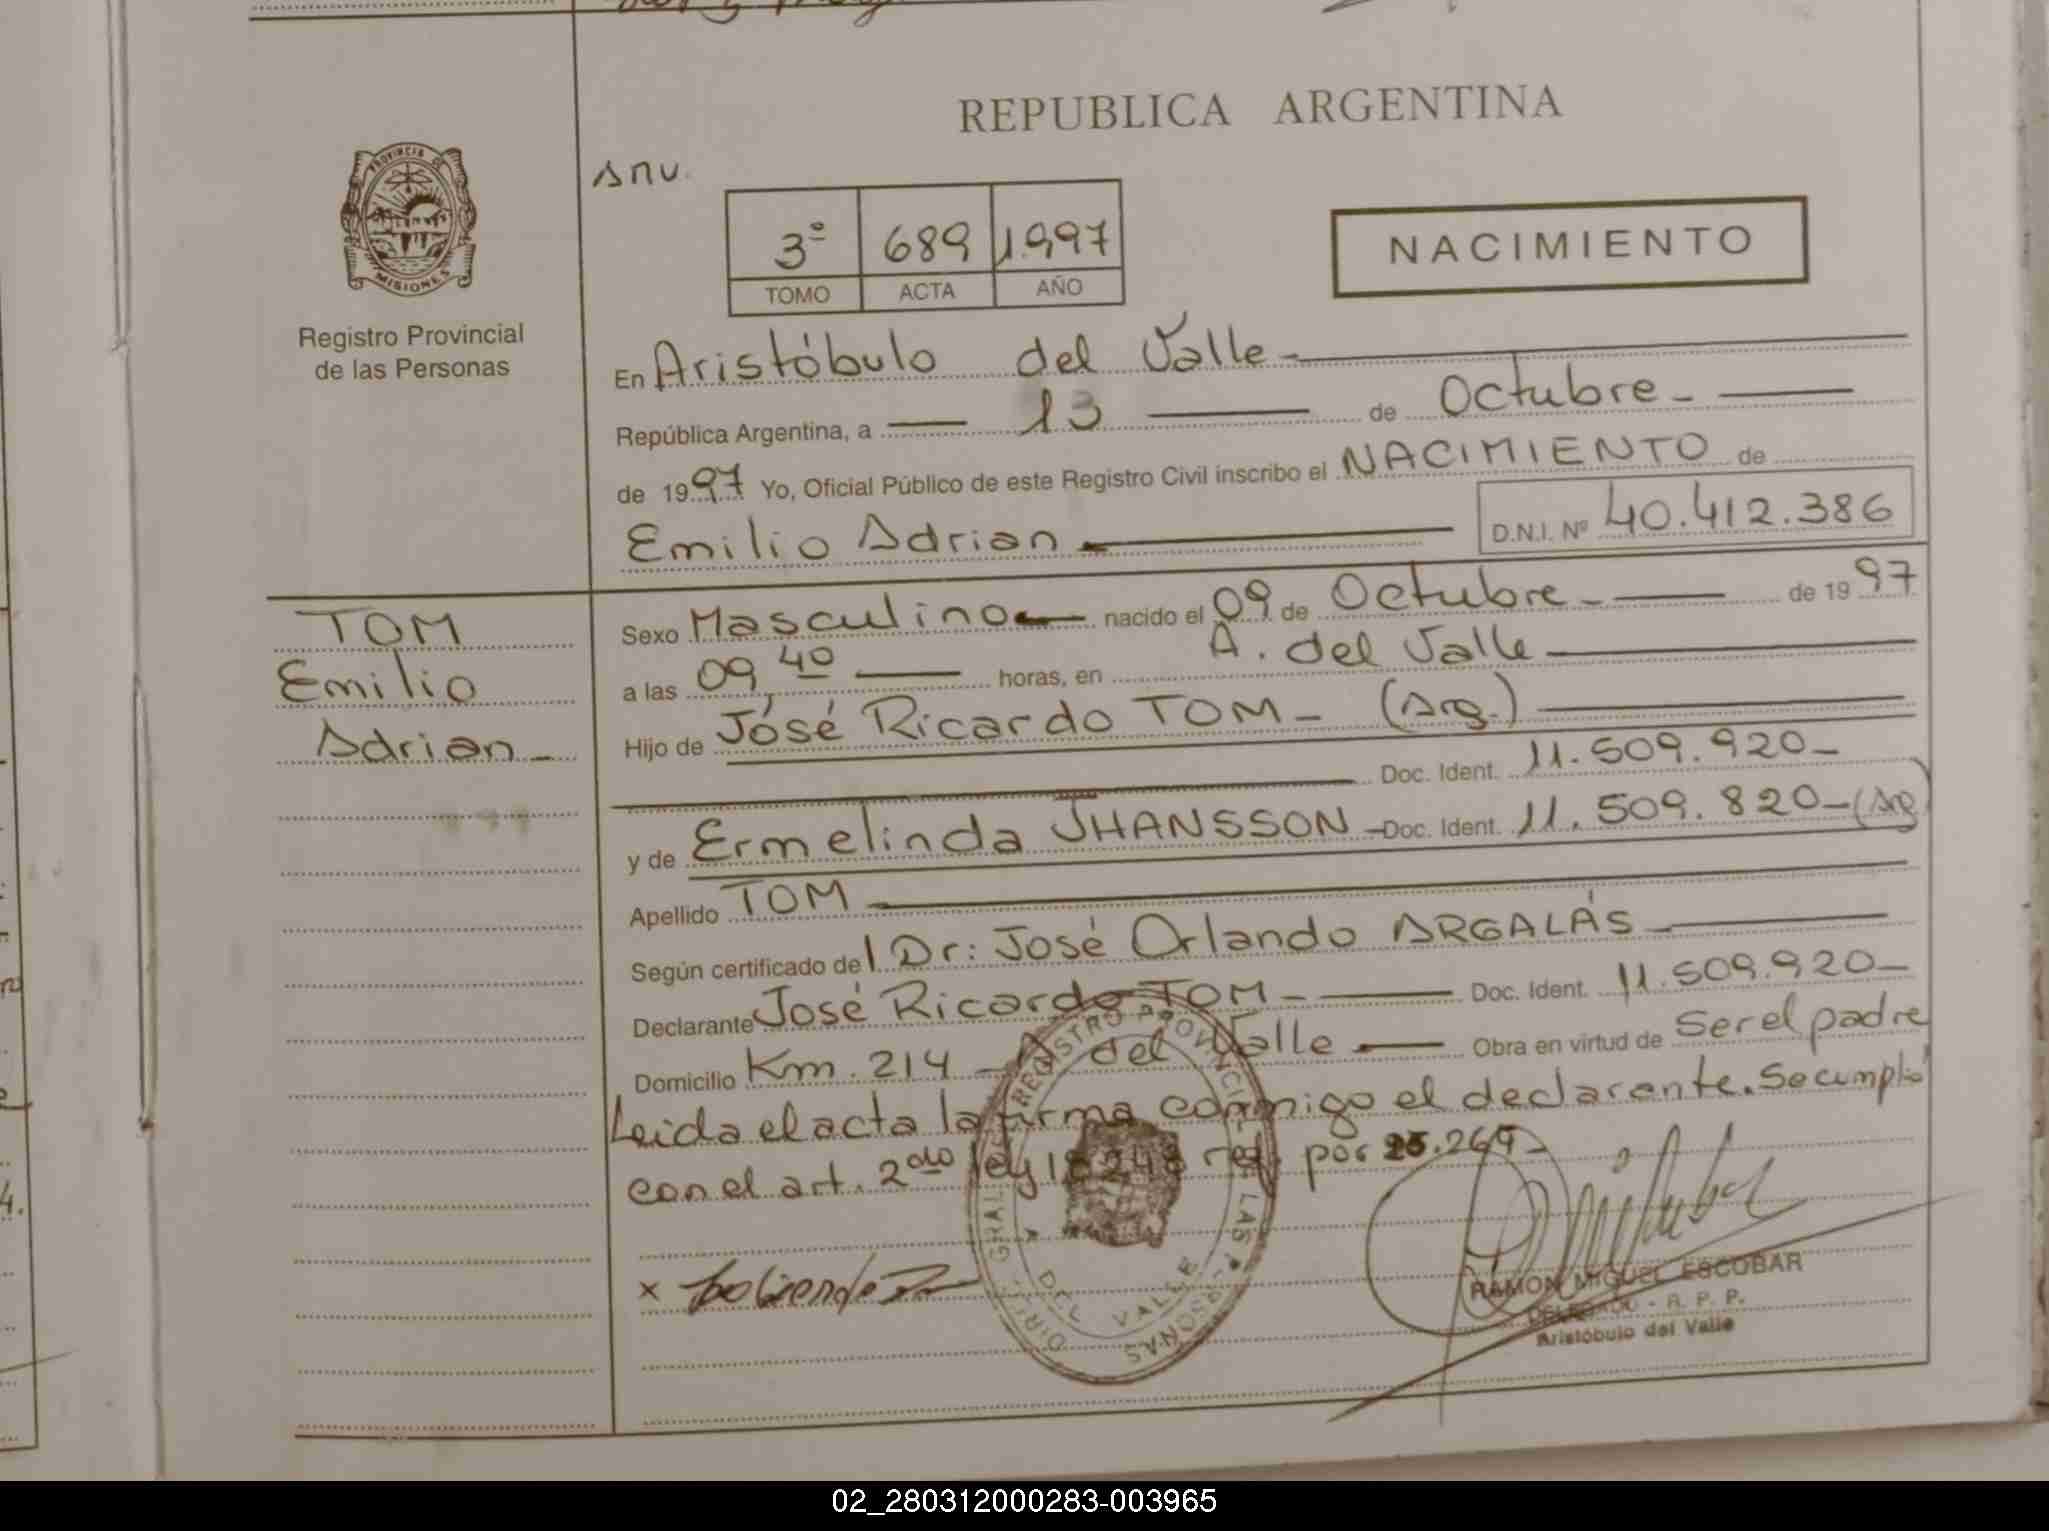 REPUBLICA ARGENTINA
PROVINCIA DE
MISIONES
Registro Provincial
de las Personas
3º 689 1.997
TOMO ACTA AÑO
NACIMIENTO
En Aristóbulo del Valle -
República Argentina, a 13 de Octubre -
de 1997 Yo, Oficial Público de este Registro Civil inscribo el NACIMIENTO de
Emilio Adrian D.N.I. Nº 40.412.386
TOM
Emilio
Adrian -
Sexo Masculino nacido el 09 de Octubre - de 1997
a las 09,40 horas, en A. del Valle
Hijo de José Ricardo TOM - (Arg.)
Doc. Ident. 11.509.920 -
y de Ermelinda JHANSSON - Doc. Ident. 11.509.820 - (Arg)
Apellido TOM
Según certificado del Dr: José Orlando ARGALÁS -
Declarante José Ricardo TOM - Doc. Ident. 11.509.920 -
Domicilio Km. 214 - A del Valle Obra en virtud de Ser el padre
Leida el acta la firma conmigo el declarante. Se cumplió
con el art. 2do ley 18248 ref. por
x
REGISTRO PROVINCIAL DE LAS PERSONAS
DEL VALLE
RAMON MIGUEL ESCOBAR
DELEGADO - R. P. P.
Aristóbulo del Valle
02_280312000283-003965